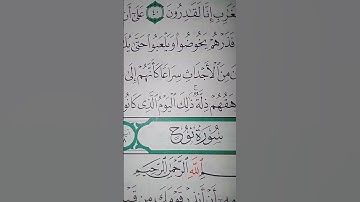 لْمَغَٰرِبِ إِنَّا لَقَٰدِرُونَ ٤٠ عَلَىٰٓ أَن
فَذَرْهُمْ يَخُوضُوا۟ وَيَلْعَبُوا۟ حَتَّىٰ يُلَ
نَ مِنَ ٱلْأَجْدَاثِ سِرَاعًا كَأَنَّهُمْ إِلَىٰ
هَقُهُمْ ذِلَّةٌ ذَٰلِكَ ٱلْيَوْمُ ٱلَّذِى كَانُوا۟
سُورَةُ نُوحٍ
بِسْمِ ٱللَّهِ ٱلرَّحْمَٰنِ ٱلرَّحِيمِ
مِهِۦٓ أَنْ أَنذِرْ قَوْمَكَ مِن قَبْ